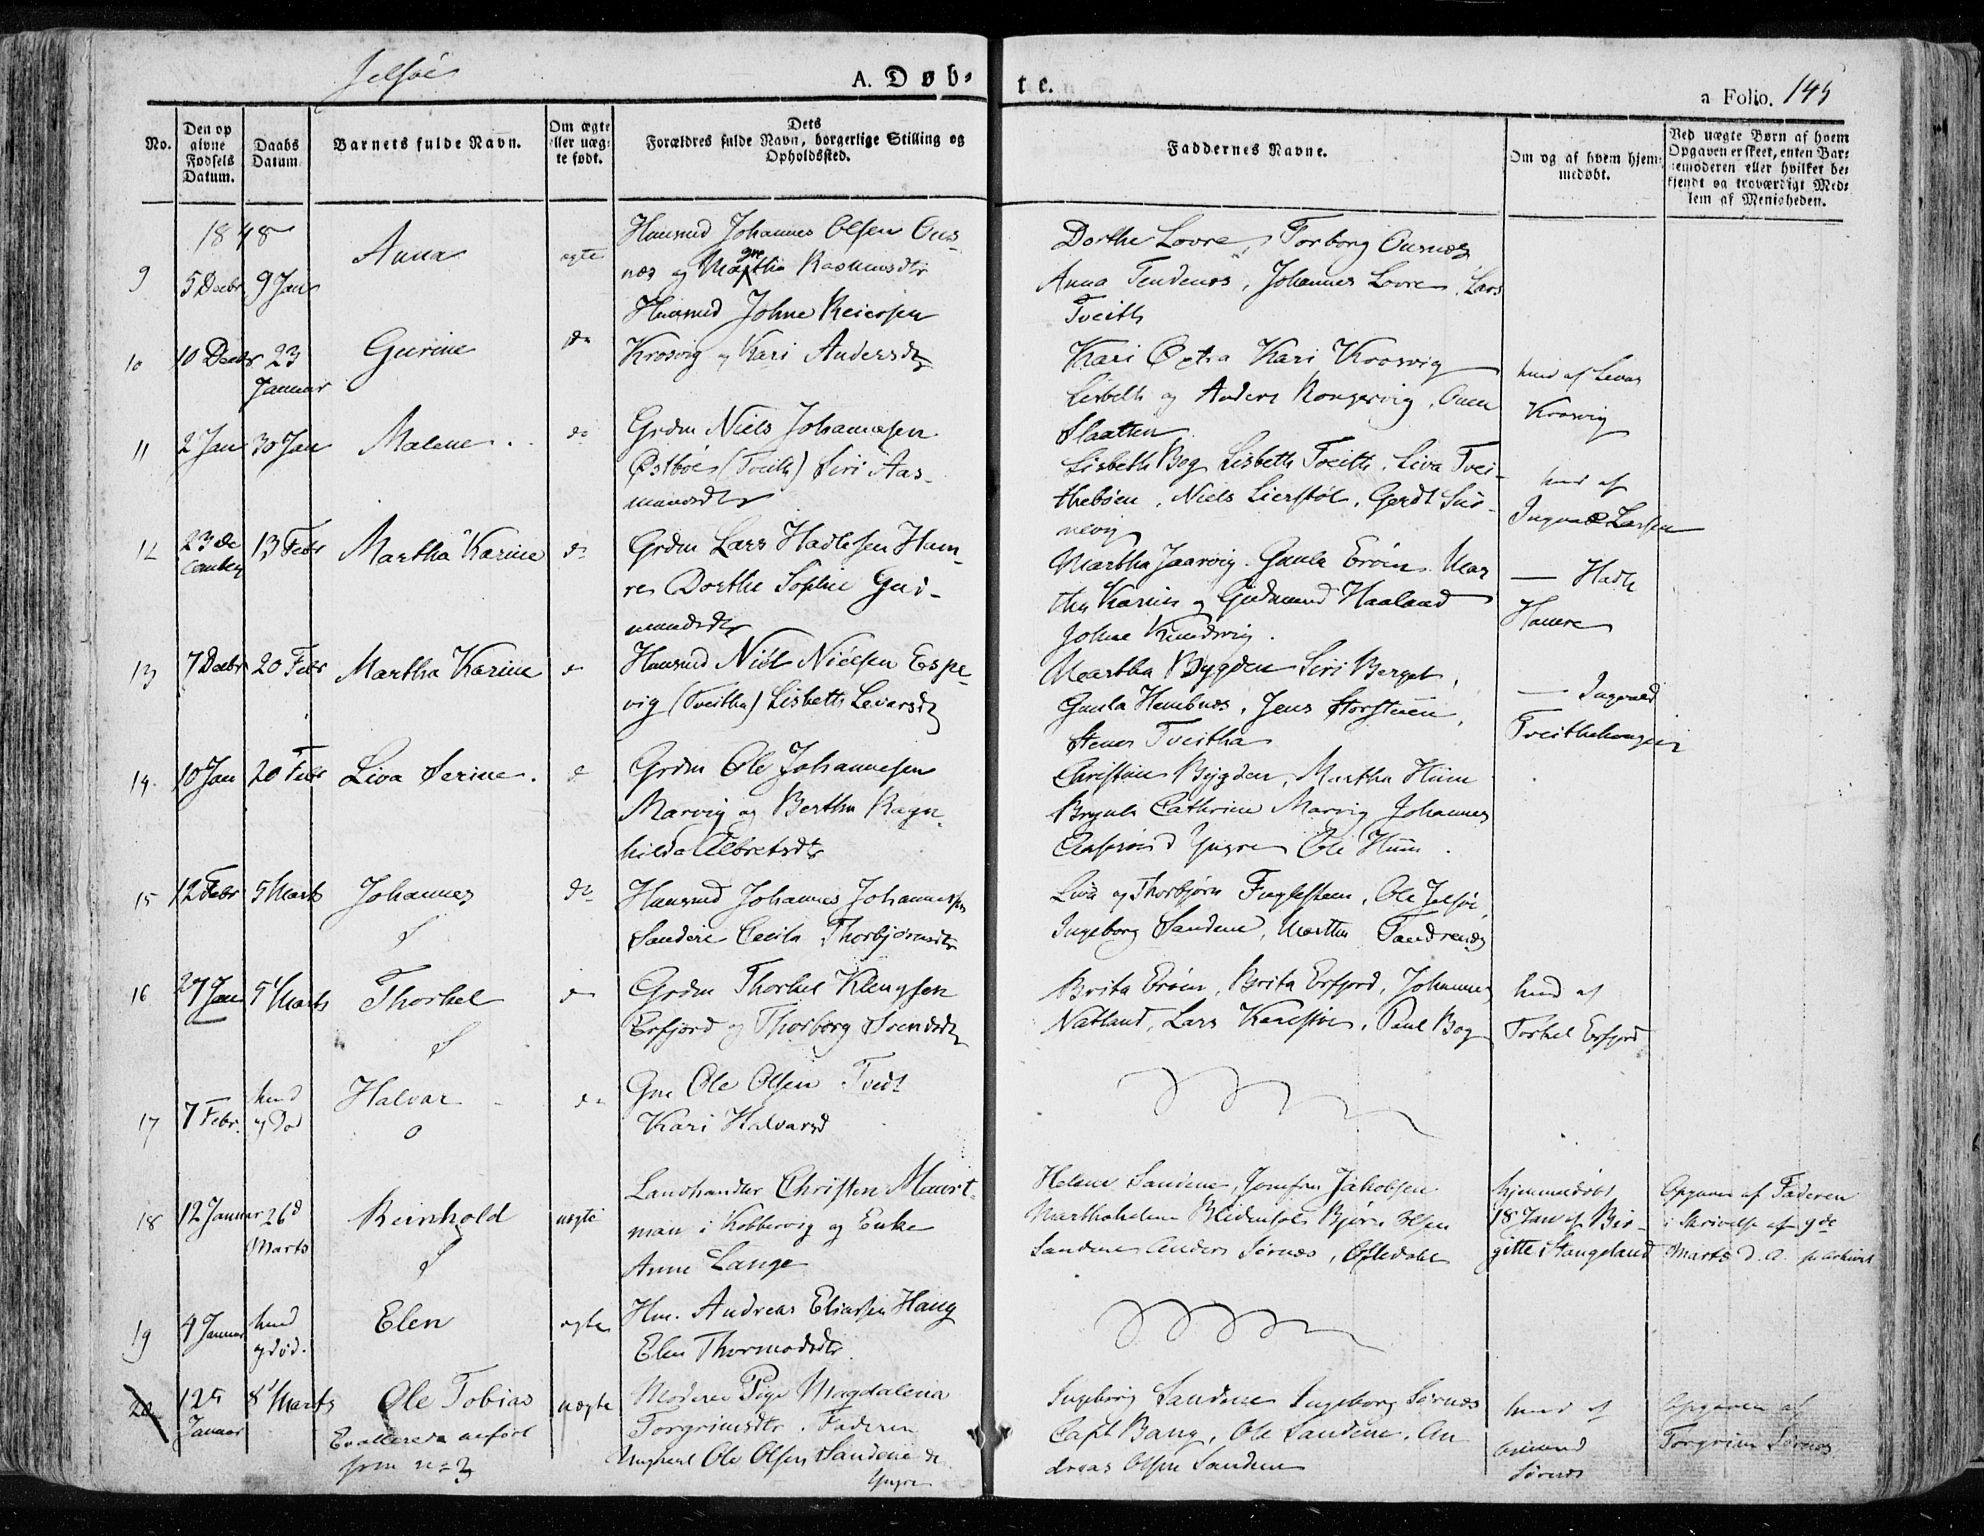 Jelsöe
A. Døb-
te.
a Folio. 145
No.
Den op
givne
Fødsels
Datum.
Daabs
Datum.
Barnets fulde Navn.
Om ægte
eller uæg-
te født.
Dets
Forældres fulde Navn, borgerlige Stilling og
Opholdssted.
Faddernes Navne.
Om og af hvem hjem-
medøbt.
Ved uægte Børn af hvem
Opgaven er skeet, enten Bar-
nemoderen eller hvilket be-
kjendt og troværdigt Med-
lem af Menigheden.
1848
9
5 Decbr
9 Jan
Anna
ægte
Huusmd Johannes Olsen Ous-
næs og Marthe Rasmusdtr
Dorthe Lovre, Torborg Ousnæs
Anna Tendenes, Johannes Lovre, Lars
Tveith
10
10 Decbr
23
Januar
Gurine
do
Huusmd Johne Reiersen
Krosvig og Kari Andersdtr
Kari Krosvig
Lisbeth og Anders Rongevig, Ouen
Slaatten
hmd af Levar
Krosvig
11
2 Jan
30 Jan
Malene
do
Grdm Niels Johannesen
Østbøe (Tveith) Siri Aas-
mundsdtr
Lisbeth Bog Lisbeth Tveith, Liva Tvei-
thebøen, Niels Lierstøl, Gerdt
hmd af
Ingvald Larsen
12
23 De
cember
13 Febr
Martha Karine
do
Grdm Lars Hadlesen Ham-
re Dorthe Sophie Gud-
mundsdtr
Martha Jaarvig, Gunla Erøen Mar
tha Karine og Gudmund Haaland
Johne
— Hadle
Hamre
13
7 Decbr
20 Febr
Martha Karine
do
Huusmd Niels Nielsen Espe-
vig (Tveitha) Lisbeth Levarsdtr
Martha Bygden Siri Berget,
Gunla Hambnes, Jens Storstuen,
Stener Tveitha
— Ingvald
Tveithehougen
14.
10 Jan
20 Febr
Liva Serine.
do
Grdm Ole Johannesen
Marvig og Bertha Ragn-
hilda Albretsdtr
Christine Bygden, Martha Hiim
Brynle Cathrine Marvig Johannes
Yngre Ole Hiim.
15
12 Febr
5 Marts
Johannes
do
Huusmd Johannes Johannessen
Sandene Cecila Thorbjørnsdtr
Liva og Thorbjørn Fuglesteen, Ole Jelsöe,
Ingeborg Sandene, Martha Tandrenæs
16
27 Jan
5 Marts
Thorkel
do
Grdm Thorkel Klengsen
Erfjord og Thorborg Svendsdtr
Brita Erøen, Brita Erfjord, Johannes
Natland, Lars, Paul Bog
hmd af
Torkel Erfjord
17
7 Febr.
hmd
og Død
Halvar
do
Gm Ole Olsen Tvedt
Kari Halvarsd
18
12 Januar
26d
Marts
Reinhold
uægte
Landhandler Christen Meiert-
man i Kobbervig og Enke
Anne Lange
Helene Sandene, Jomfru Jakobsen
Marthahelene Bjørn Olsen
Sandene Anders Sørnæs,
hjemmedøbt
18 Jan af Bir-
gitte Stangeland
Opgaven af Faderen
i Skrivelse af 9de
Marts d. A.
19
4 Januar
hmd
og død.
Elen
ægte
Hm. Andreas Eliassen Haug
Elen Thormodsdtr.
20
12te
Januar
8 Marts
Ole Tobias
Er allerede anført
som no 2
uægte
Moderen Pige Magdalena
Torgrimsdtr. Faderen
Ungkarl Ole Olsen Sandene d
Yngre
Ingeborg Sandene Ingeborg Sørnæs
Capt Bang, Ole Sandene, An
dreas Olsen Sandene
hmd af
Sørnæs
Opgaven af
Torgrim Sørnæs